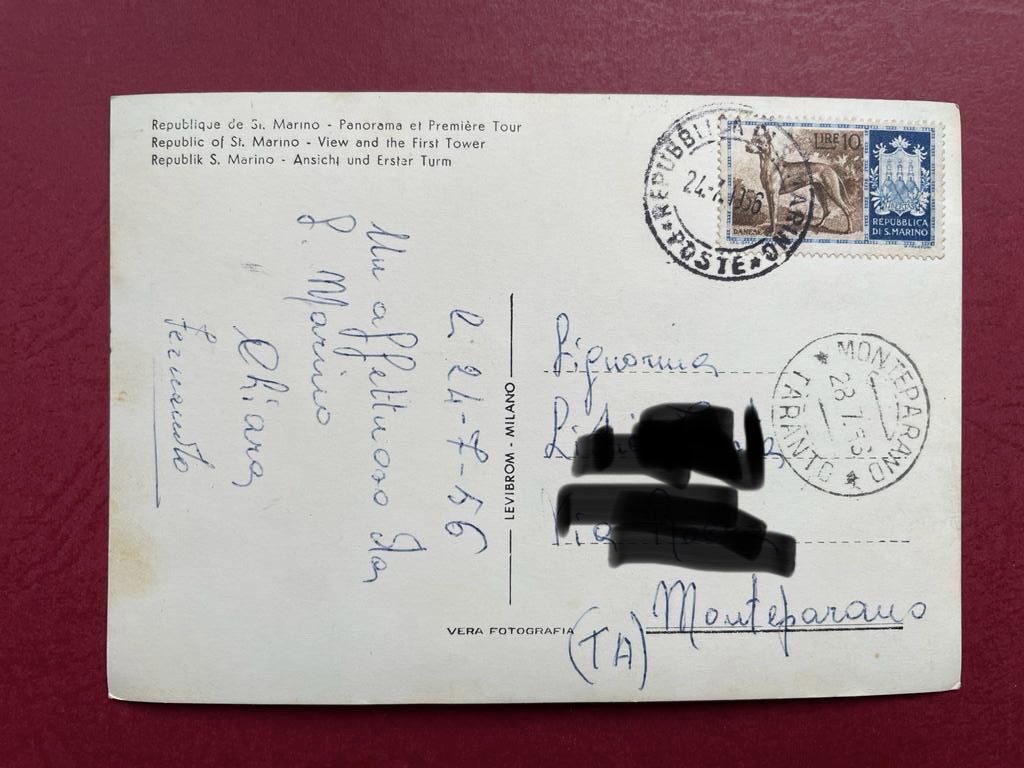 Republique de St. Marino - Panorama et Première Tour
Republic of St. Marino - View and the First Tower
Republik S. Marino - Ansicht und Erster Turm
REPUBBLICA DI S. MARINO
24-7-1956
* POSTE *
LIRE 10
DANESE
LIBERTAS
REPUBBLICA
DI S. MARINO
lì 24-7-56
Un affettuoso da
S. Marino
Chiara
Fernando
LEVIBROM - MILANO
VERA FOTOGRAFIA
Signorina
Via
Monteparano
(TA)
* MONTEPARANO *
28.7.56
TARANTO